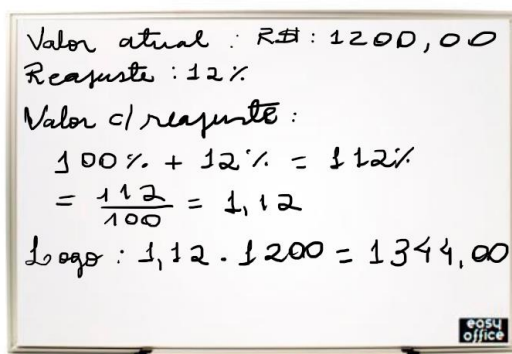 Valor atual : R$ : 1200,00
Reajuste : 12%
Valor c/ reajuste :
100% + 12% = 112%
= 112/100 = 1,12
Logo : 1,12 . 1200 = 1344,00
easy
office